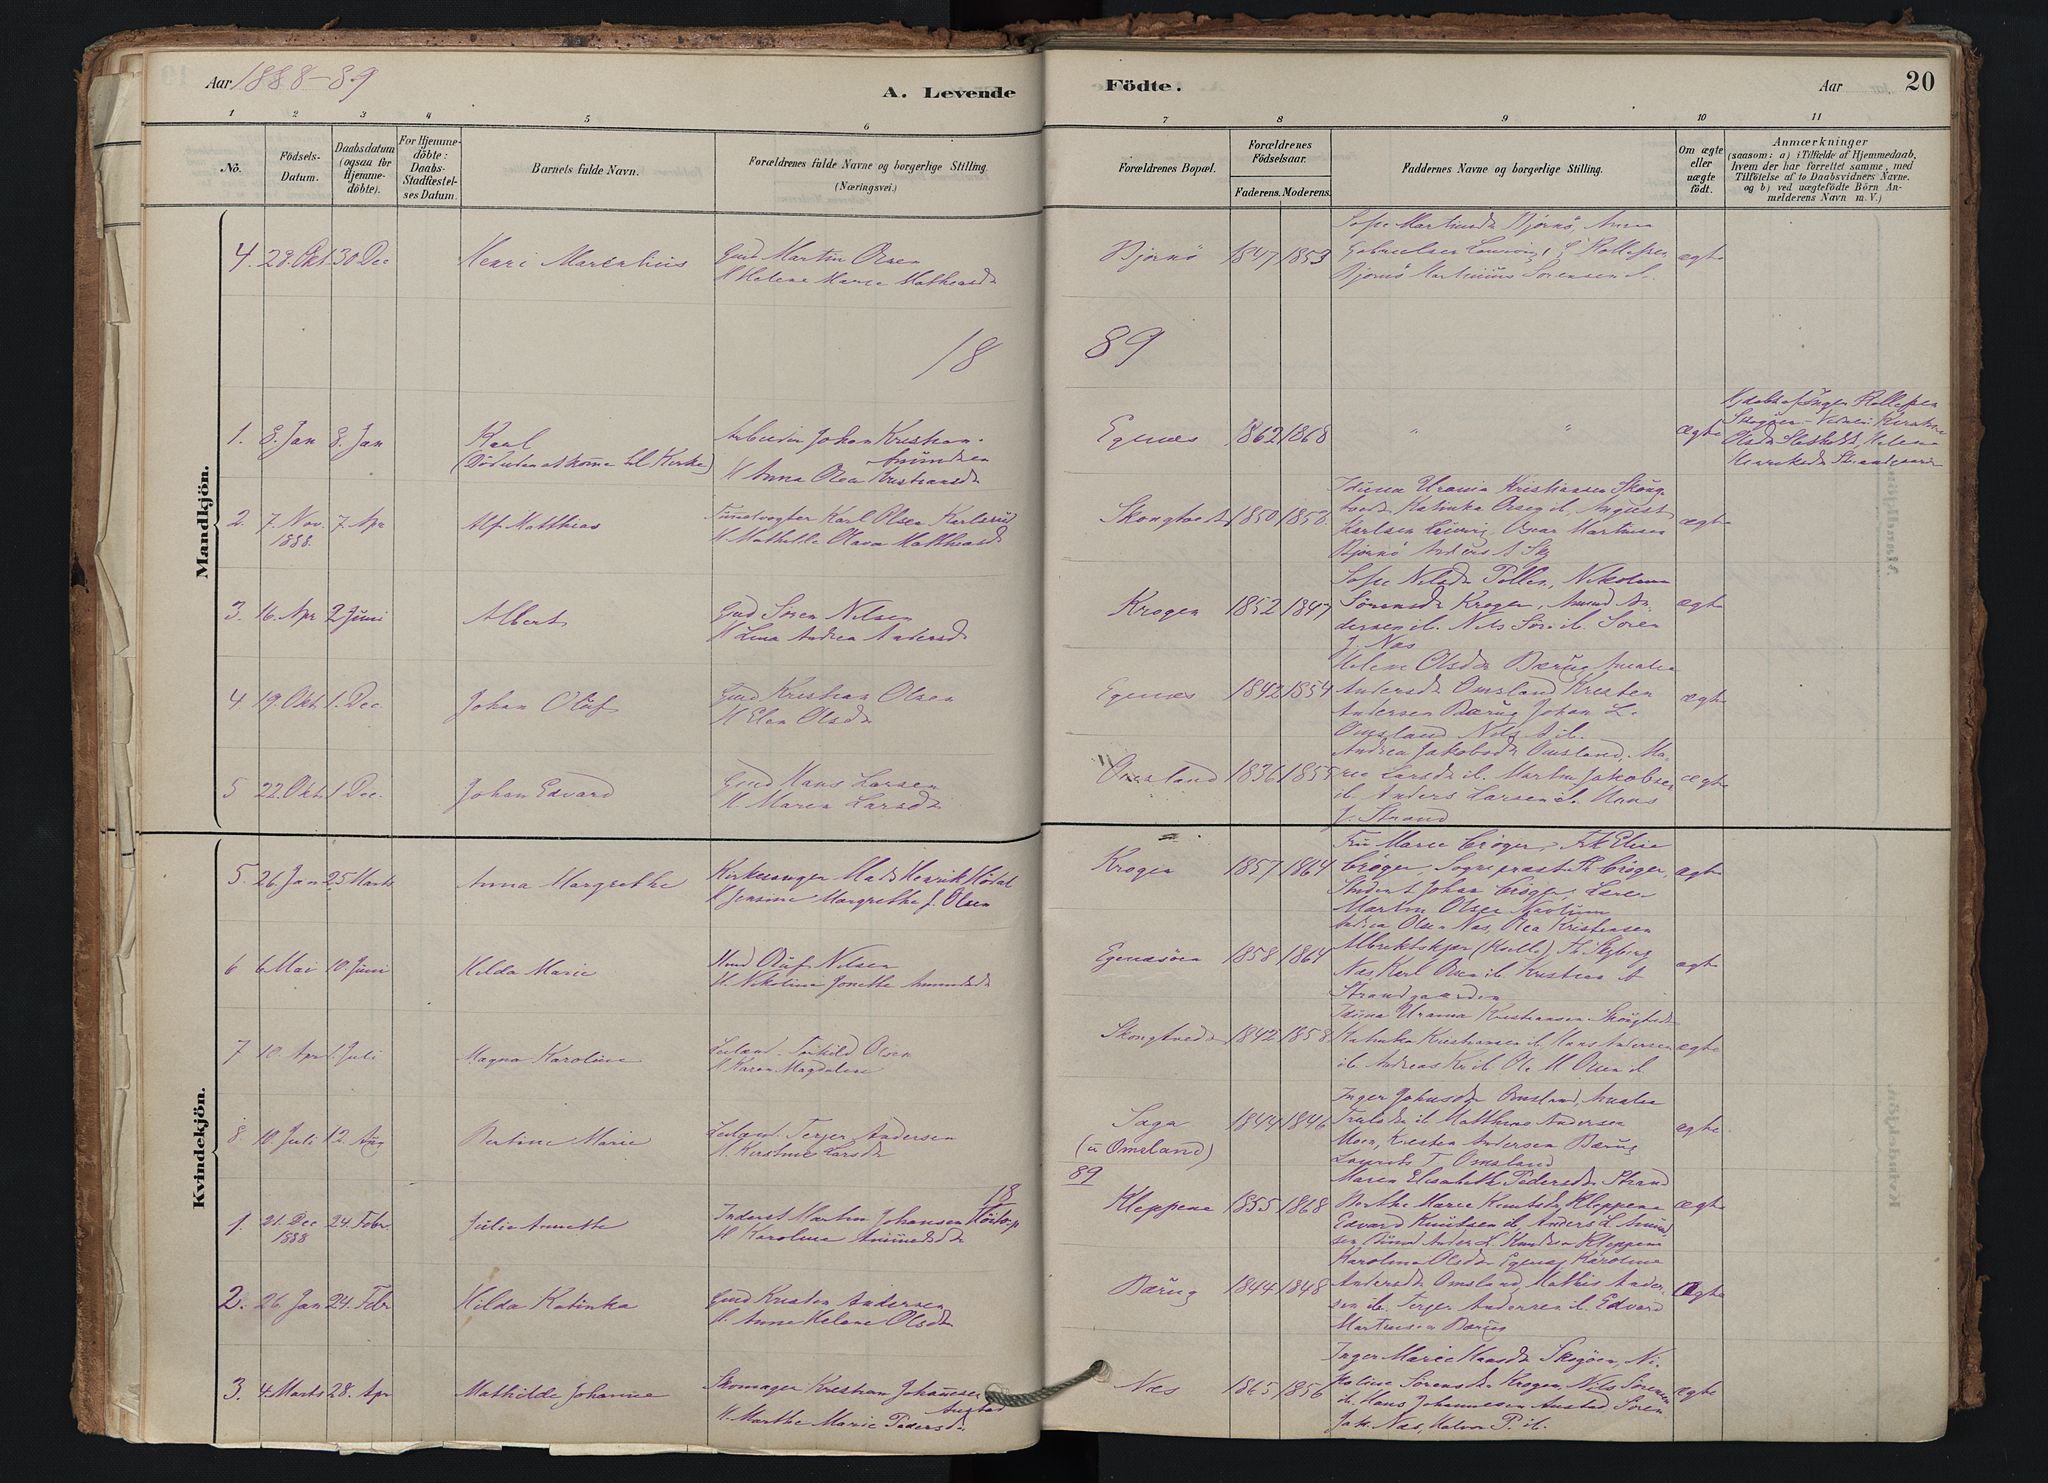 Aar 1888-89
A. Levende
Födte.
Aar
20
1 2 3 4 5 6 7 8 9 10 11
No.
Födsels-
Datum.
Daabsdatum
(ogsaa for
Hjemme-
döbte).
For Hjemme-
döbte:
Daabs-
Stadfæstel-
ses Datum.
Barnets fulde Navn.
Forældrenes fulde Navne og borgerlige Stilling.
(Næringsvei.)
Forældrenes Bopæl.
Forældrenes
Födselsaar.
Faderens. Moderens.
Faddernes Navne og borgerlige Stilling.
Om ægte
eller
uægte
födt.
Anmærkninger
(saasom: a) i Tilfælde af Hjemmedaab,
hvem der har forrettet samme, med
Tilföielse af to Daabsvidners Navne.
og b) ved uægtefödte Börn An-
melderens Navn m. V.)
Mandkjön.
4. 28. Okt 30 Dec
Henri Marentius
Gud Martin Olsen
H Helene Marie Mathiasdr
Bjørnø 1847 1853
Sofie Martinsdr Bjørnø, Anna
Bjørnø Martinius Sørensen ib.
ægte
18
89
1. 8. Jan 8. Jan
Karl
(Død uden at komme til Kirke)
Arbeider Johan Kristian
Amundsen
H Anna Olea Kristiansdr
Egenes 1862 1868
" "
ægte
2. 7. Nov. 7. Apr
1888.
Alf Matthias
Karl Olsen Karlsrud
H Mathilde Olava Matthiasdr
Skougtvedt 1850 1850
Iduna Urania Kristiansen Skoug-
Bjørnø Anders A Sk
ægte
3. 16. Apr 2 Juni
Albert
Gud Søren Nilsen
H Lina Andrea Andersdr
Krogen 1852 1847
Sofie Nilsdr Tolles, Nikoline
Sørensdr Krogen, Amund An-
dersen ib. Nils Sør. ib. Søren
J. Næs
ægte
4 19. Okt 1. Dec.
Johan Oluf
Gud Kristian Olsen
H Elen Olsdr
Egenæs 1842 1854
Helene Olsdr Bærug Amalia
Andersdr Omsland Kristen
Andersen Bærug Johan L.
Omsland Nils A ib.
ægte
5 22. Okt 1 Dec.
Johan Edvard
Gud Hans Larsen
H Maren Larsdr
Omsland 1836 1855
Andrea Jakobsdr Omsland, Ma-
ren Larsdr ib. Martin Jakobsen
ib. Anders Larsen ib. Hans
J. Strand
ægte
Kvindekjön.
5. 26. Jan 25 Marts
Anna Margrethe
Kirkesanger Mads Henrik Høstal
H Jensine Margrethe J. Olsen
Krogen 1857 1864
Fru Marie Crøger, Frk Elise
Crøger, Sogneprest Th Crøger,
Student Johan Crøger, Lærer
Martin Olsen
ægte
6 6 Mai 10. Juni
Hilda Marie
Oluf Nilsen
H. Nikoline Jonette Amundsdr
Egenæsøen 1858 1864
Andrea Olsen Næs, Olea Kristensen
Næs Karl Olsen ib. Kristian A
Strandgaarden
ægte
7 10. Apr 1. Juli
Magna Karoline
Leiland. Torkild Olsen
H Karen Magdalene
Skougtvedt 1842 1858
Iduna Urania Kristiansen Skougtvedt
Katinka Kristiansen ib. Hans Andersen
ib. Andreas Kr ib Ole M Olsen ib
ægte
8. 10. Juli 12. Aug
Bertine Marie
Leiland. Terjer Andersen
H. Kirstine Larsdr
Saga 1844 1846
(u Omsland)
Inger Johnsdr Omsland, Amalia
Trulsdr ib Matthias Andersen
Moen, Kristen Andersen Bærug
Laurits T. Omsland
ægte
18
89
1. 21. Dec 24. Febr.
1888
Julie Annette
Inderst Martin Johansen
H Karoline Amundsdr
Kleppene 1855 1868
Maren Elisabeth Pedersdr Strand
Berthe Marie Knutsdr Kleppene
Edvard Knutsen ib, Anders L. Amund-
ægte
2. 26. Jan 24. Febr
Hilda Katinka
Gud Kristen Andersen
H. Anne Helene Olsdr
Bærug 1844 1848
Karolina Olsdr Egenæs Karoline
Andersdr Omsland, Mathis Ander-
sen ib. Terjer Andersen ib. Edvard
Martinsen Bærug
ægte
3. 4. Marts 28. Apr
Mathilde Johanne
Skomager Kristian Johannesen
Anstad
H. Marthe Marie Pedersdr
Næs 1865 1856
Inger Marie Hansdr Skogøen, Ni-
koline Sørensdr Krogen, Nils Sørensen
ib. Hans Johannesen Anstad Søren
Jak. Næs, Halvor P. ib.
ægte